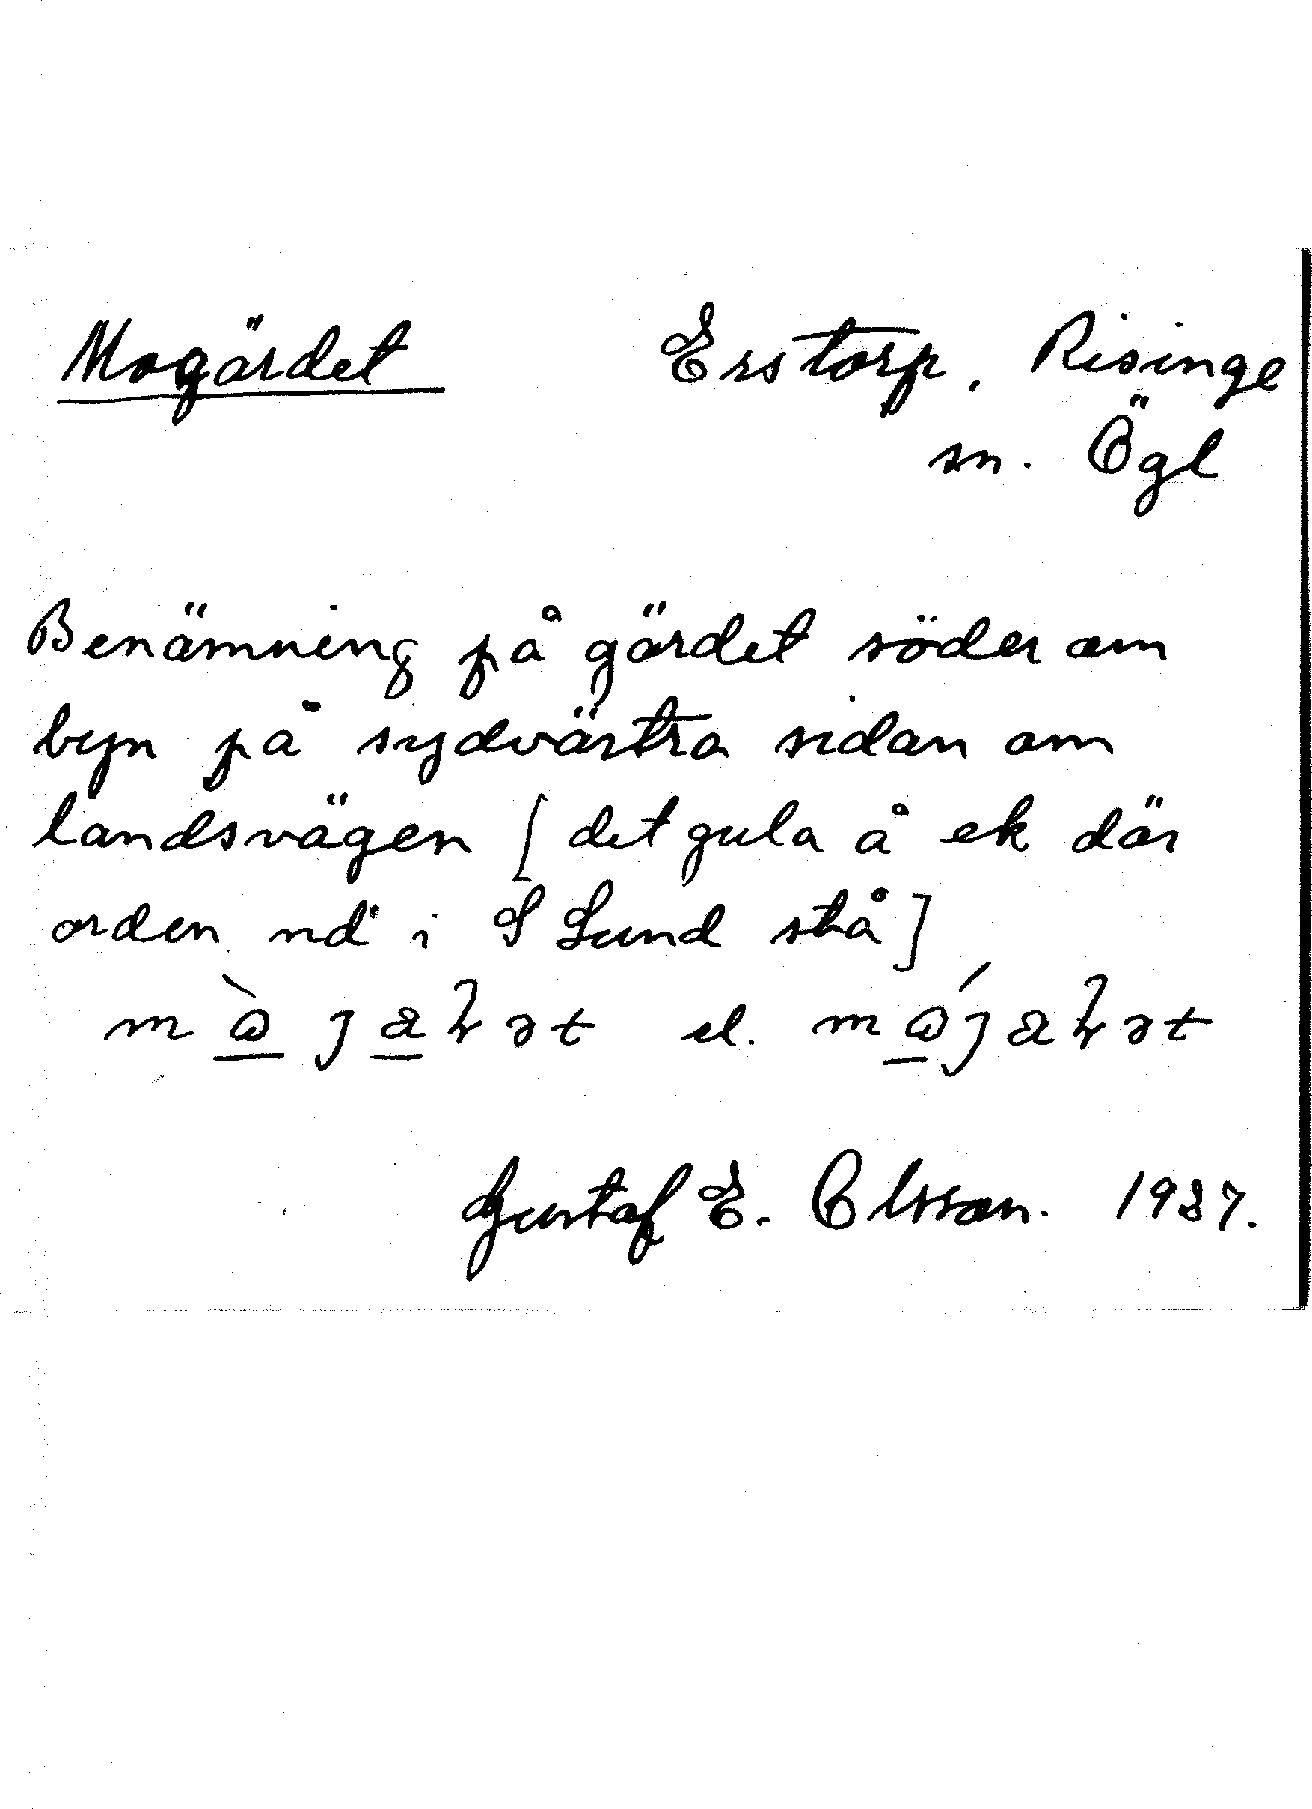 Mogärdet
Erstorp, Risinge
sn. Ögl
Benämning på gärdet söder om
byn på sydvästra sidan om
landsvägen [det gula å ek där
orden nd i S Sund stå]
el.
Gustaf E. Olsson. 1937.